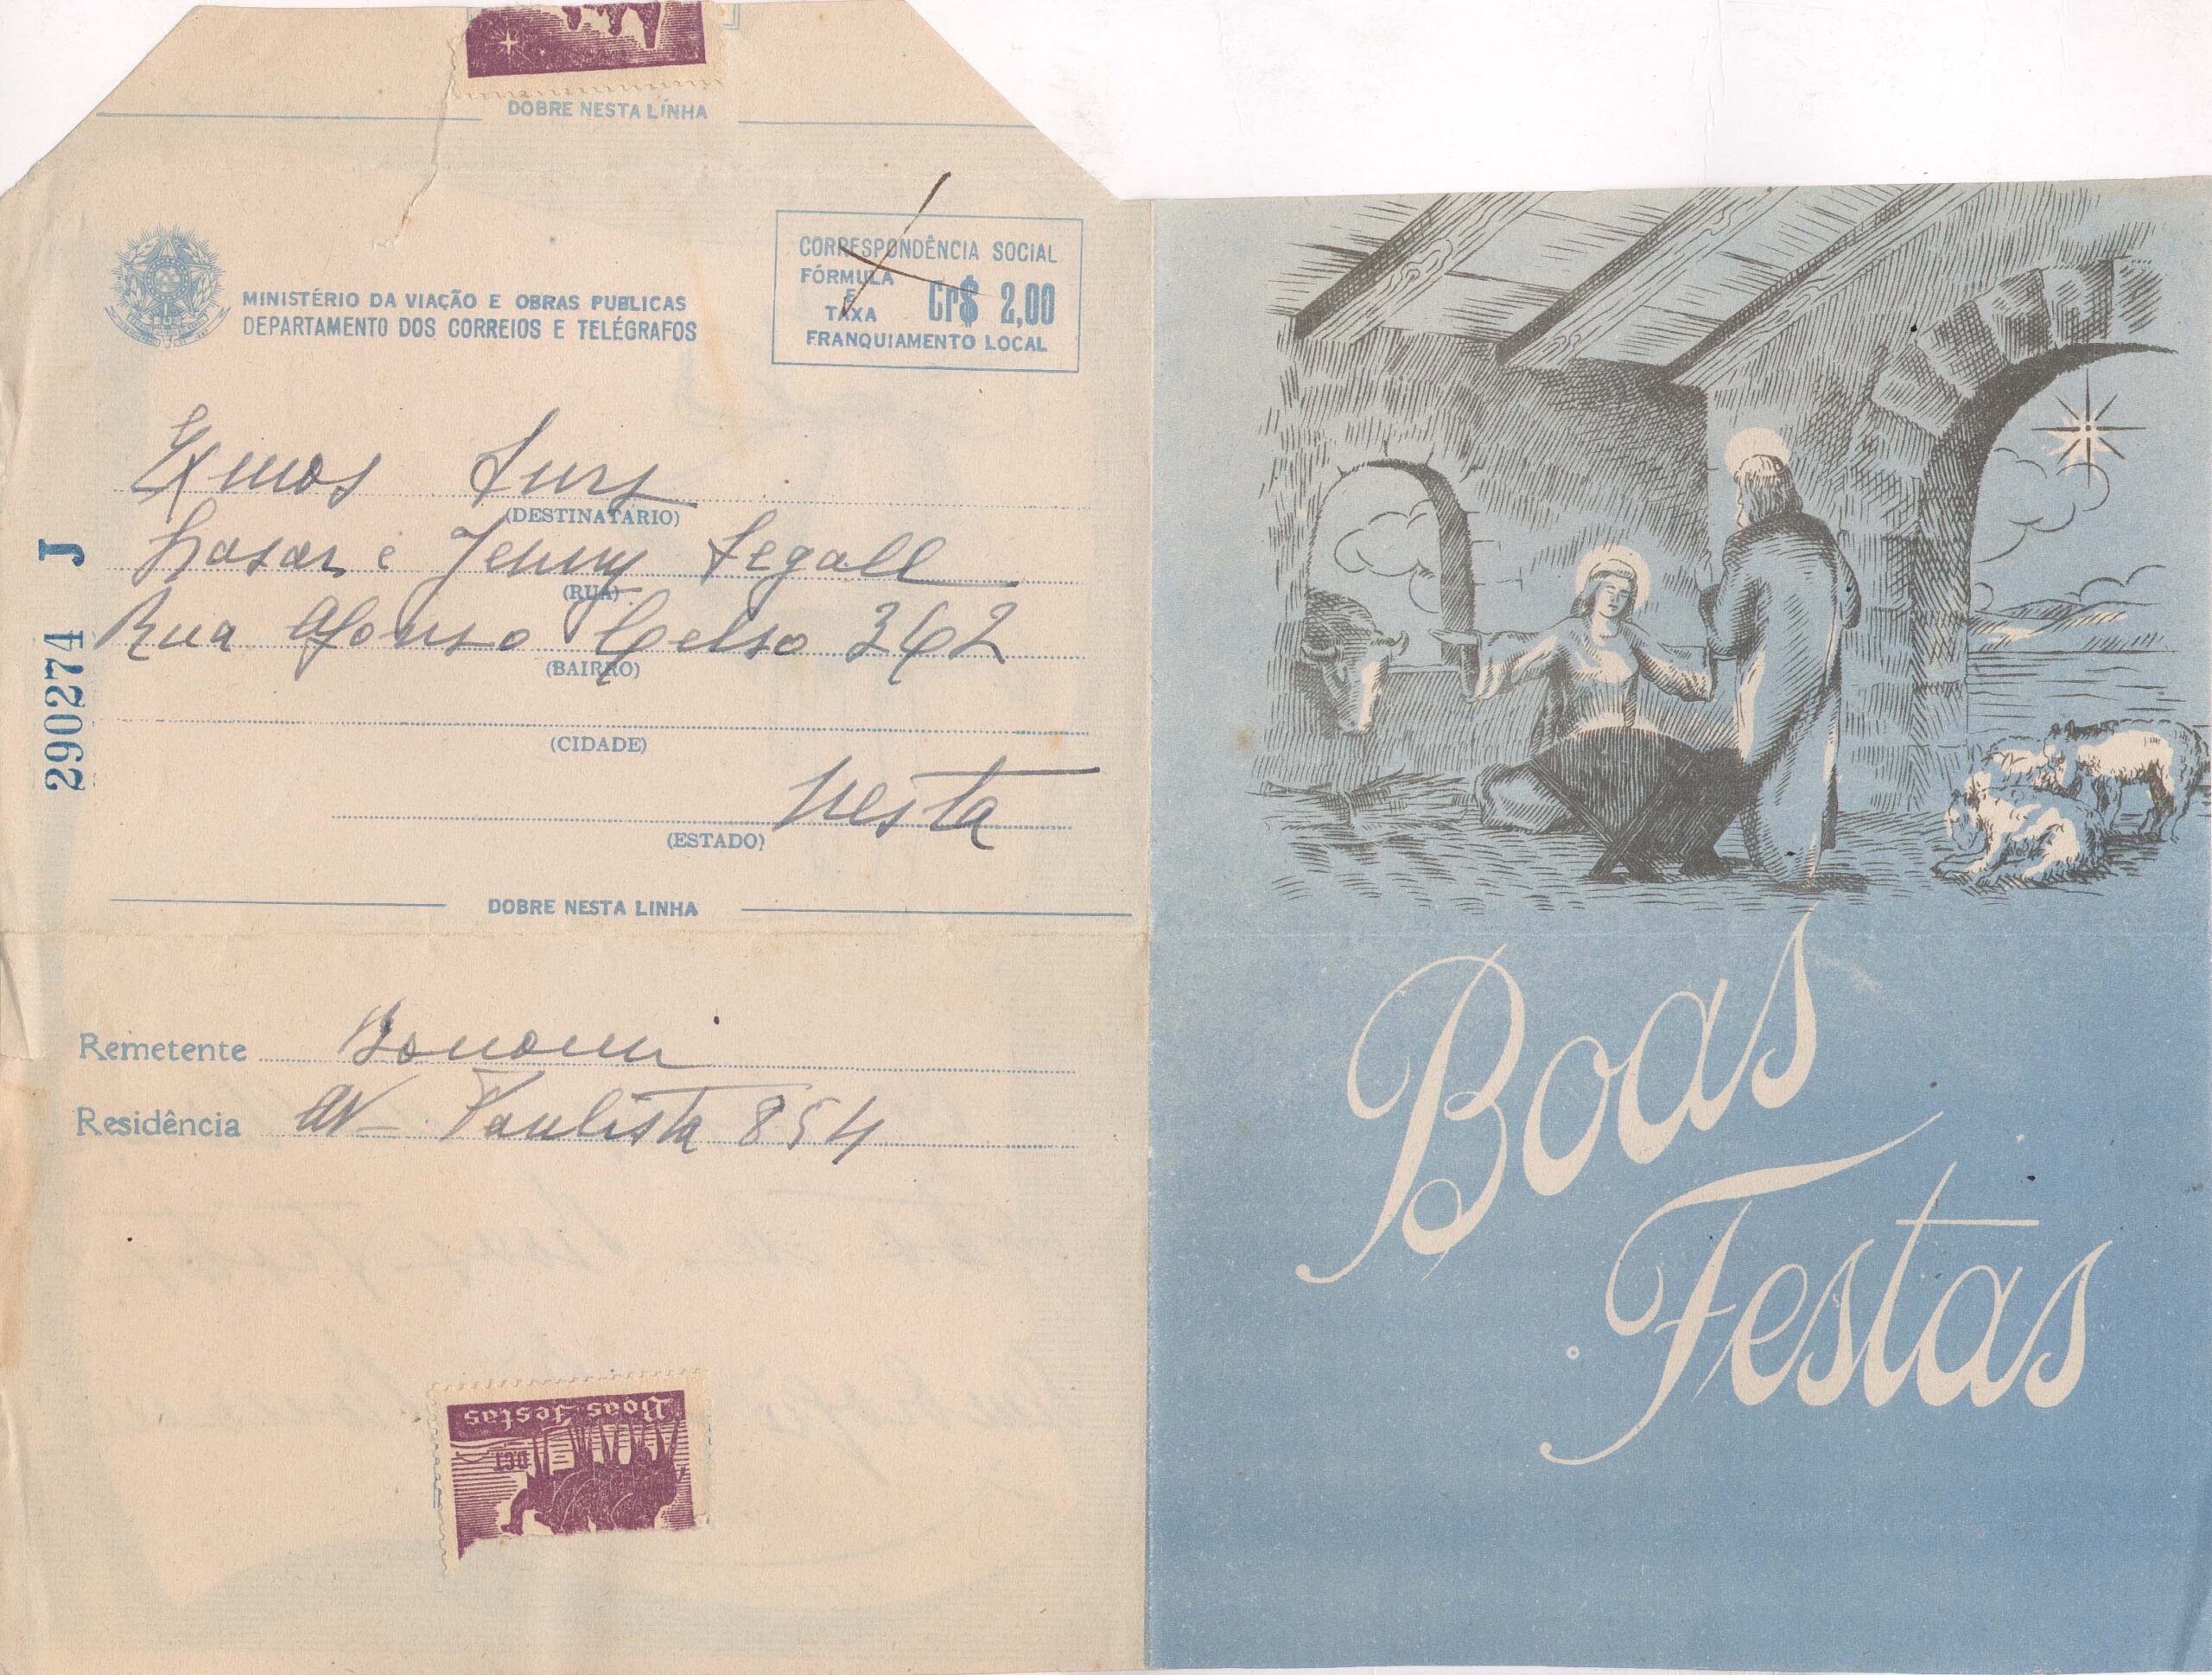 DOBRE NESTA LINHA
MINISTÉRIO DA VIAÇÃO E OBRAS PUBLICAS
DEPARTAMENTO DOS CORREIOS E TELÉGRAFOS
CORRESPONDÊNCIA SOCIAL
FÓRMULA
E
TAXA
Cr$ 2,00
FRANQUIAMENTO LOCAL
Exmos Snrs
(DESTINATARIO)
Lasar e Jenny Segall
(RUA)
Rua Afonso Celso 362
(BAIRRO)
(CIDADE)
Nesta
(ESTADO)
290274 J
DOBRE NESTA LINHA
Remetente Bonomi
Residência Av- Paulista 854
Boas Festas
DCT
Boas
Festas